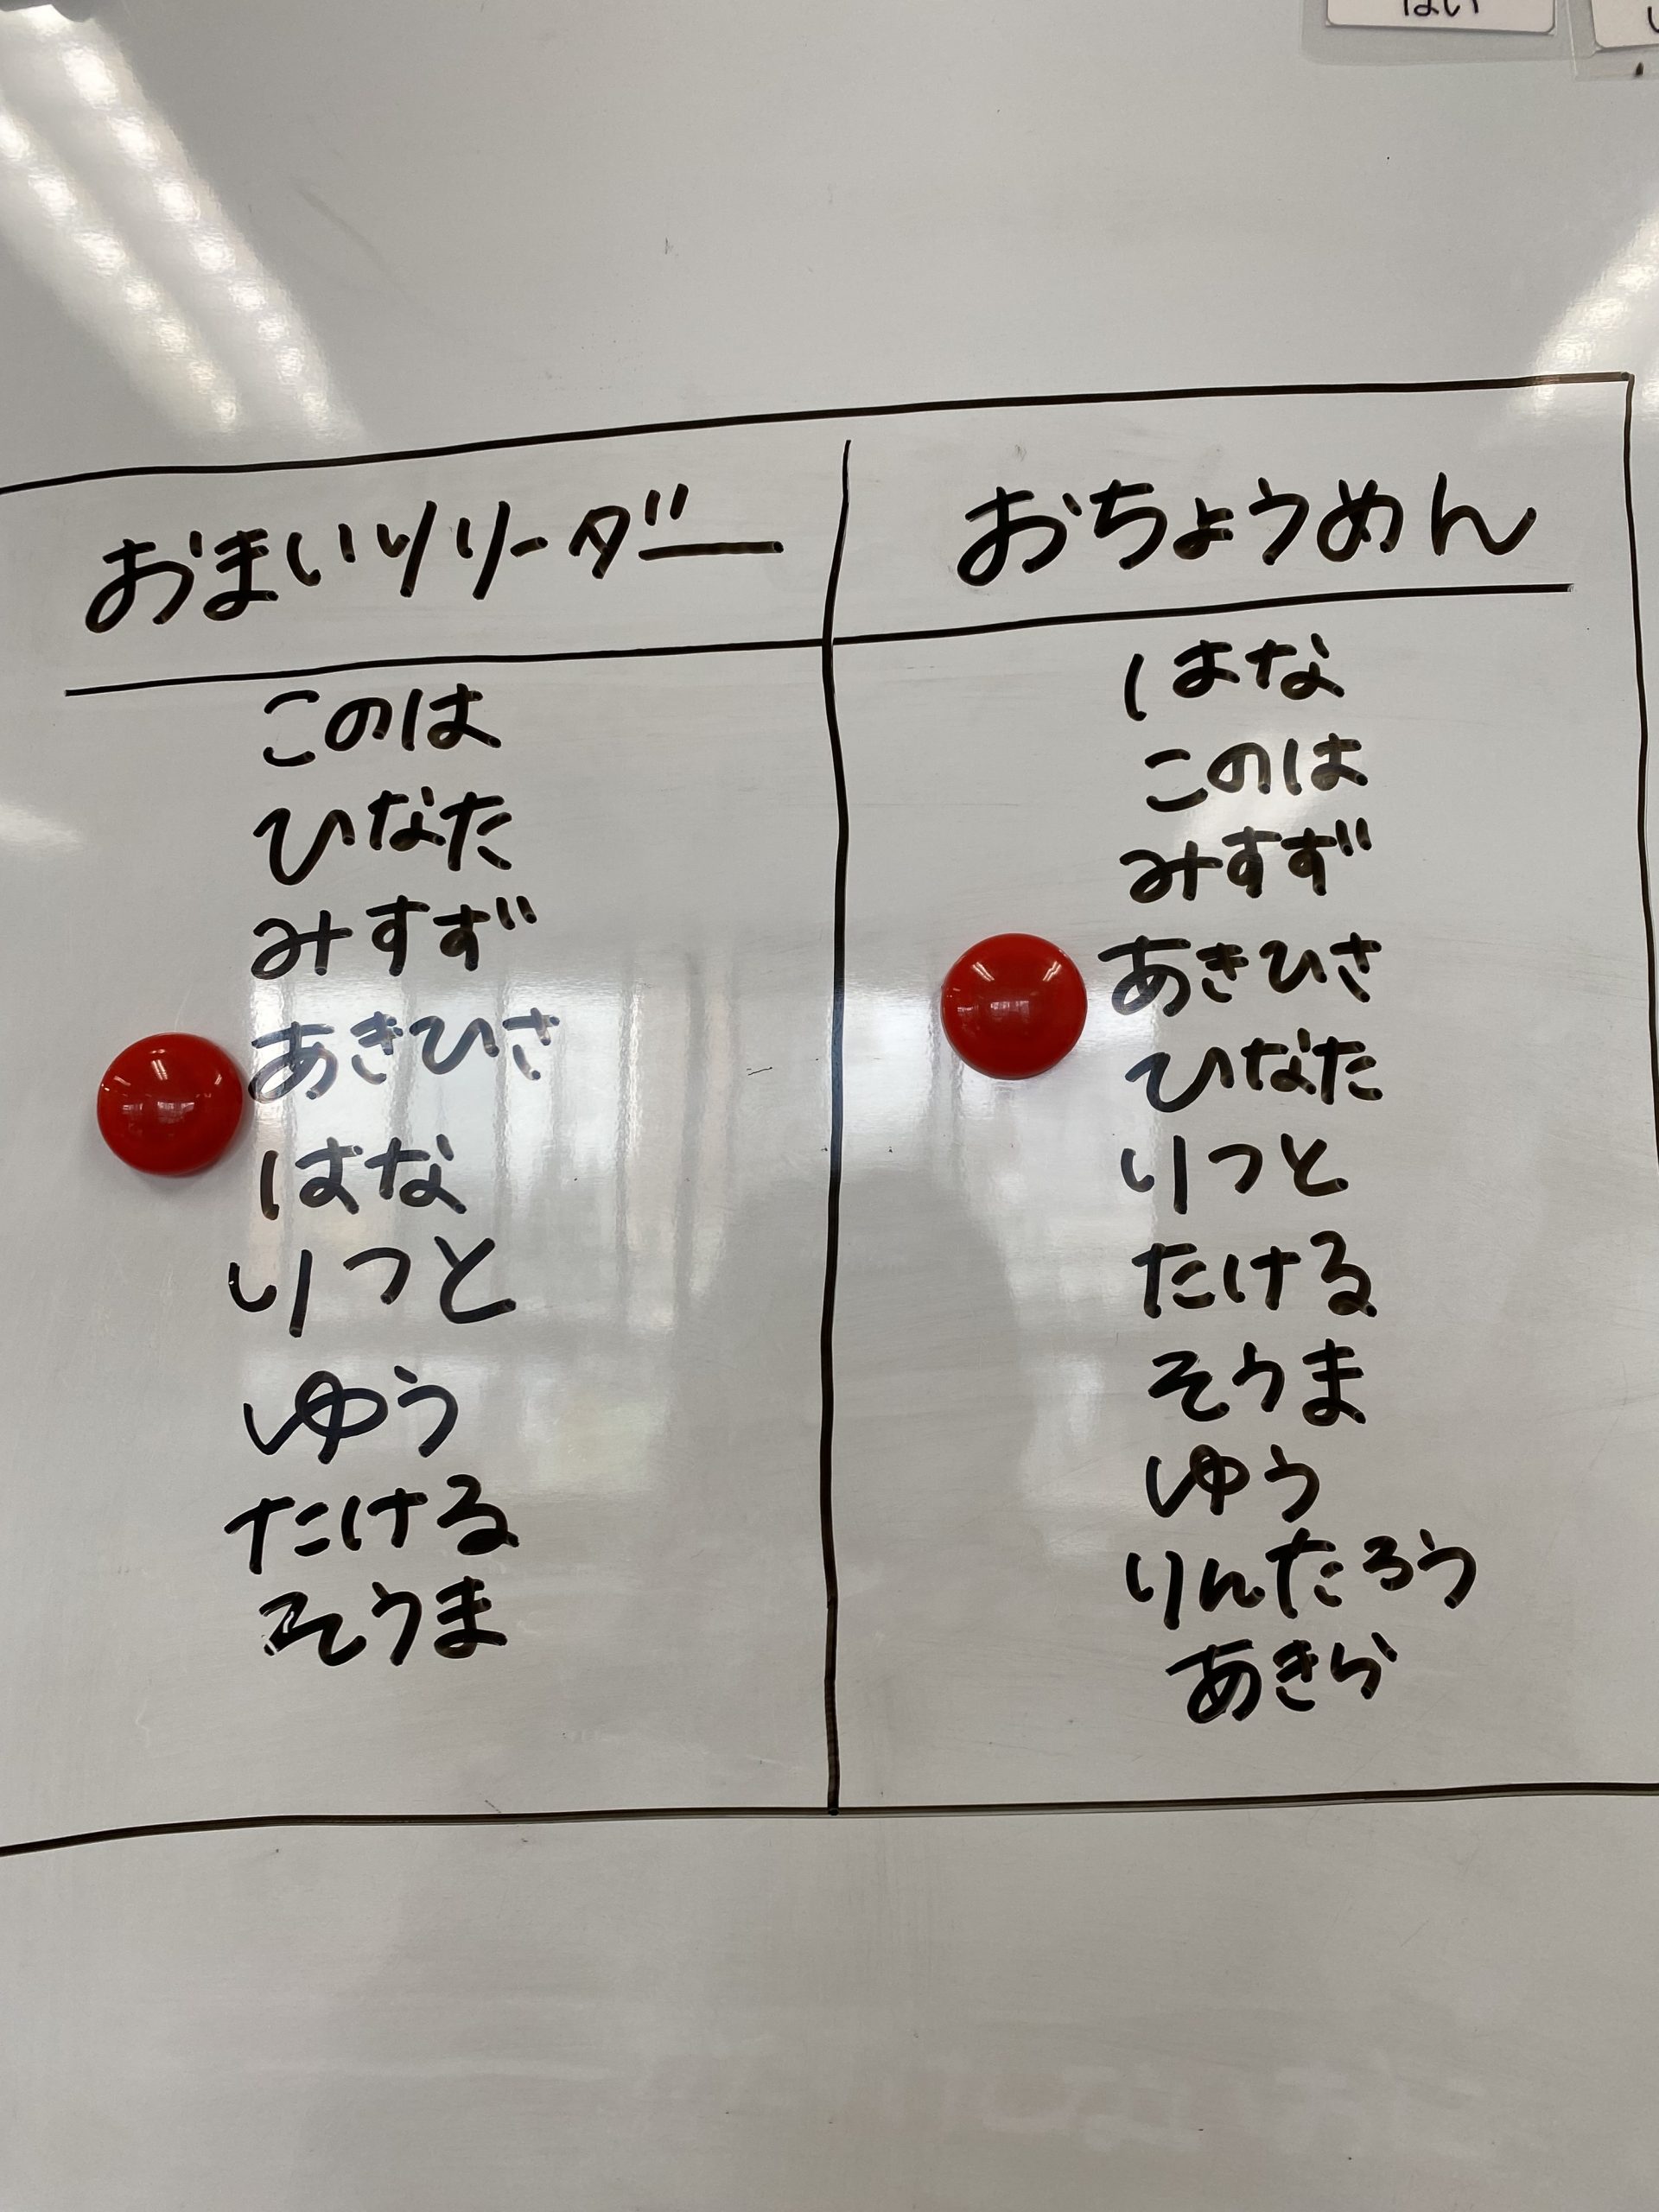 はい
おまいりリーダー
このは
ひなた
みすず
あきひさ
はな
りつと
ゆう
たける
そうま
おちょうめん
はな
このは
みすず
あきひさ
ひなた
りつと
たける
そうま
ゆう
りんたろう
あきら